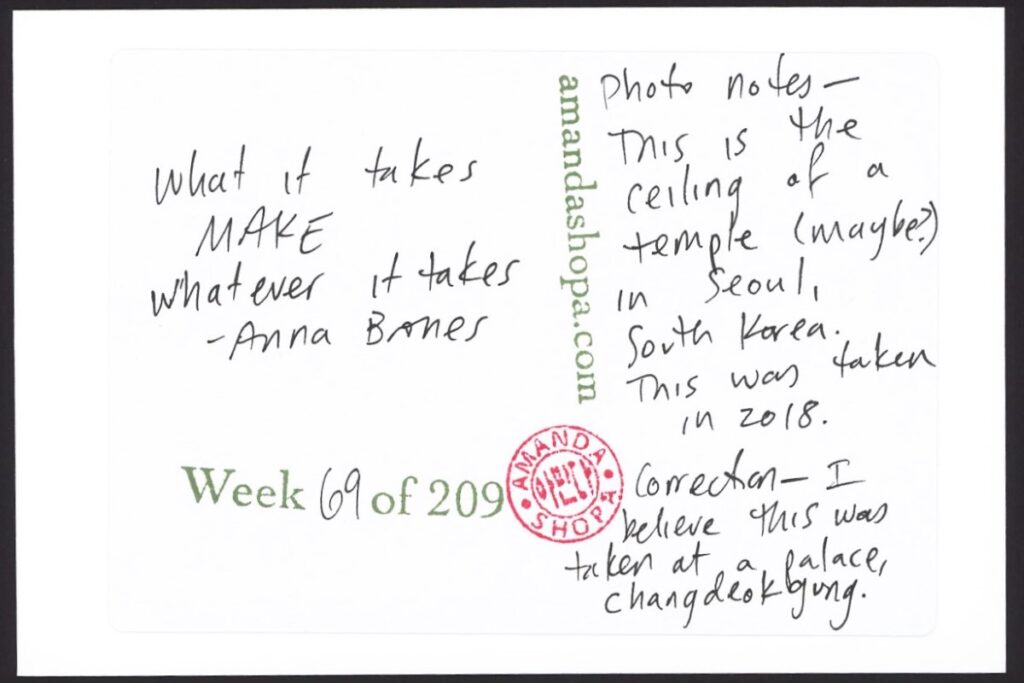 What it takes
MAKE
whatever it takes
-Anna
Week 69 of 209
amandashopa.com
AMANDA
SHOPA
Photo notes —
This is the
ceiling of a
temple (maybe?)
in Seoul,
South Korea.
This was taken
in 2018.
Correction — I
believe this was
taken at a palace,
changdeokgung.